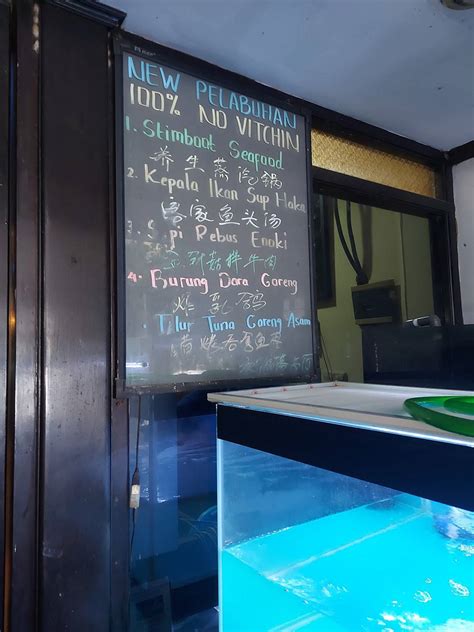 NEW PELABUHAN
100% NO VITCHIN
1. Stimboat Seafood
养生蒸汽锅
2. Kepala Ikan Sup Haka
客家鱼头汤
3. Sapi Rebus Enoki
牛肉
4. Burung Dara Goreng
炸乳鸽
Telur Tuna Goreng Asam